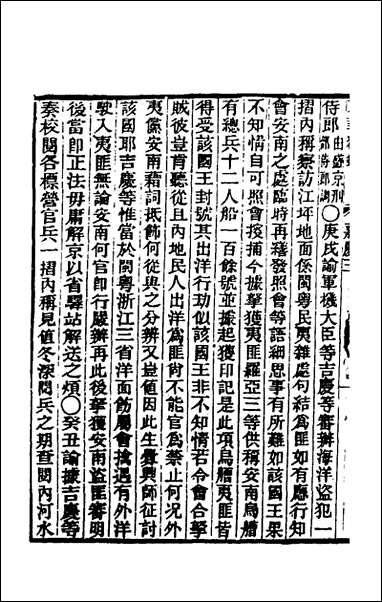 侍郎由盛京刑部侍郎調○庚戌諭軍機大臣等吉慶等審辦海洋盜犯一
摺內稱察訪江坪地面係閩粵民夷雜處句結為匪如有應行知
會安南之處臨時再繕發照會等語細思事有所難如該國王果
不知情自可照會搜捕今據拏獲夷匪羅亞三等供稱安南烏艚
有總兵十二人船一百餘號並據起獲印記是此項烏艚夷匪皆
得受該國王封號其出洋行劫似該國王非不知情若令會合拏
賊彼豈肯聽從且內地民人出洋為匪尚不能官為禁止何況外
夷儻安南藉詞抵飾何從與之分辨又豈值因此生釁興師征討
該國耶吉慶等惟當於閩粵浙江三省洋面飭屬會擒遇有外洋
駛入夷匪無論安南何官即行嚴辦再此後拏獲安南盜匪審明
後當即正法毋庸解京以省驛站解送之煩○癸丑諭據吉慶等
奏校閱各標營官兵一摺內稱見值冬深閱兵之期查閩內河水